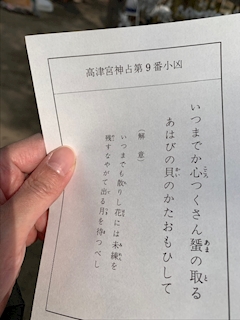 高津宮神占第9番小凶
いつまでか心つくさん蜑の取る
あはびの貝のかたおもひして
(解意)
いつまでも散りし花には未練を
残すなやがて出る月を待つべし